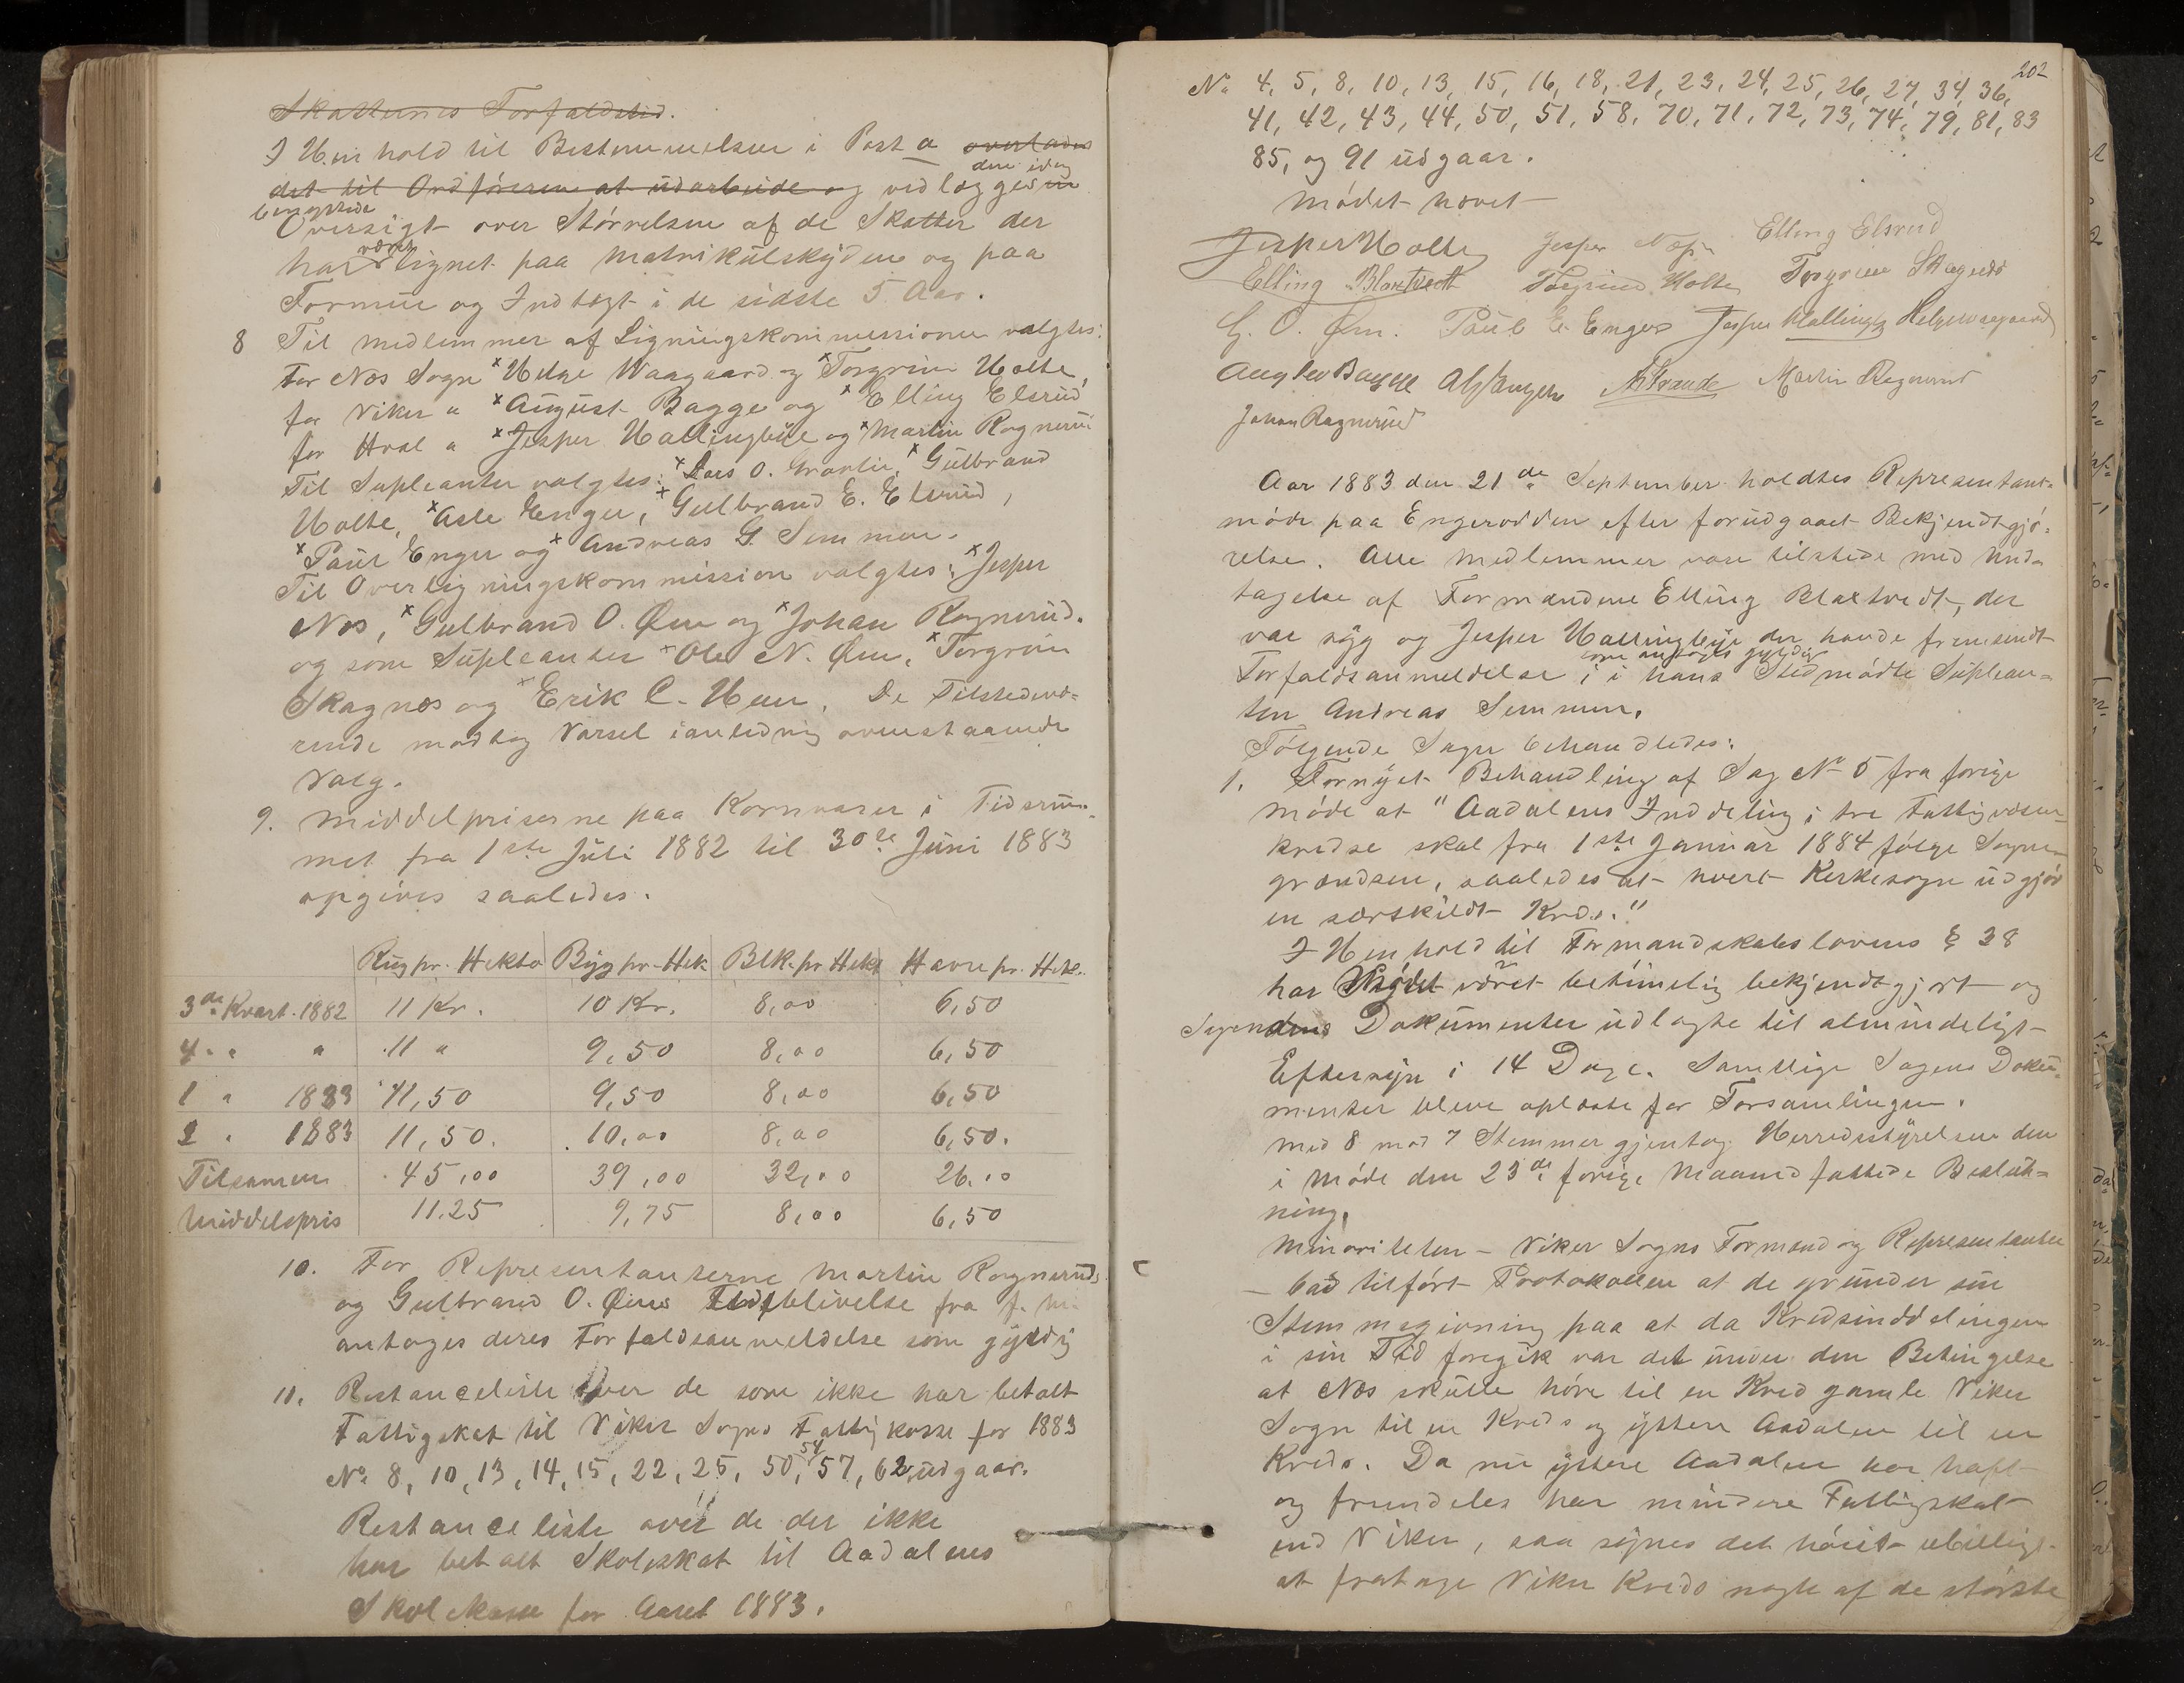 Skatternes Forfaldstid.
I Henhold til Bestemmelsen i Post a overlades
det til Ordføreren at udarbeide og vedlægges en
den idag
benyttede
Oversigt over Størrelsen af de Skatter der
har været lignet paa Matrikulskylden og paa
Formue og Indtægt i de sidste 5 Aar.
8 Til Medlemmer af Ligningskommissionen valgtes:
For Næs Sogn x Helge Waagaard og x Torgrim Holte,
for Viker " x August Bagge og x Elling Elsrud
for Hval " x Jesper Hallingbye og x Martin Rognerud
Til Supleanter valgtes: x Lars O. Granlie, x Gulbrand
Holte, x Asle Enger, x Gulbrand E. Elsrud,
x Paul Enger og x Andreas G. Semmen.
Til Overligningskommission valgtes: x Jesper
Næs, x Gulbrand O. Øen og x Johan Rognerud.
og som Supleanter x Ole N. Øen, x Torgrim
Skagnæs og x Erik C. Heen. De Tilstedevæ-
rende modtog Varsel i anledning ovenstaaende
Valg.
9. Middelpriserne paa Kornvarer i Tidsrum-
met fra 1ste Juli 1882 til 30te Juni 1883
opgives saaledes.
Rug pr. Hekto Byg pr. Hek. Blk. pr Hekt Havre pr. Hekt.
3de Kvart. 1882 11 Kr. 10 Kr. 8,00 6,50
4. " " 11 " 9,50 8,00 6,50
1 " 1883 11,50 9,50 8,00 6,50
2 " 1883 11,50. 10,00 8,00 6,50.
Tilsamen 45,00 39,00 32,00 26,00
Middelspris 11.25 9,75 8,00 6,50
10. For Representanterne Martin Rognerud
og Gulbrand O. Øens Udeblivelse fra f. M.
antoges deres Forfaldsanmeldelse som gyldig
11. Restanceliste over de som ikke har betalt
Fattigskat til Viker Sogns Fattigkasse for 1883
No 8, 10, 13, 14, 15, 22, 25, 50, 54, 57, 62, udgaar.
Restanceliste over de der ikke
har betalt Skoleskat til Aadalens
Skolekasse for Aaret 1883.
202
No 4, 5, 8, 10, 13, 15, 16, 18, 21, 23, 24, 25, 26, 27, 34, 36,
41, 42, 43, 44, 50, 51, 58, 70, 71, 72, 73, 74, 79, 81, 83
85, og 91 udgaar.
Mødet hævet
Jesper Holte Jesper Næss Elling Elsrud
Elling Blaxtvedt Torgrim Holte Torgrim Skagnæs
G. O. Øen. Paul E. Enger Jesper Hallingby Helge Waagaard
Aug Bagge Martin Rognerud
Johan Rognerud
Aar 1883 den 21de September holdtes Representant-
møde paa Engerodden efter forudgaaet Bekjendtgjø-
relse. Alle Medlemmer vare tilstede med Und-
tagelse af Formændene Elling Blaxtvedt, der
var syg og Jesper Hallingbye der havde fremsendt
Forfaldsanmeldelse, som ansøgtes gyldig i hans Sted mødte Suplean-
ten Andreas Semmen.
Følgende Sager behandledes:
1. Fornyet Behandling af Sag No 5 fra forige
Møde at "Aadalens Inddeling i tre Fattigvæsen-
kredse skal fra 1ste Januar 1884 følge Sogne-
grændsen, saaledes at hvert Kirkesogn udgjør
en særskildt Kreds."
I Henhold til Formandskabslovens § 28
har Mødet været betimelig bekjendtgjort og
Sagens Dokumenter udlagte til almindeligt
Eftersyn i 14 Dage. Samtlige Sagens Doku-
menter bleve oplæste for Forsamlingen.
Med 8 mod 7 Stemmer gjentog Herredsstyrelsen den
i Møde den 23de forige Maaned fattede Beslut-
ning.
Minoriteten - Viker Sogns Formænd og Representanter
- bad tilført Protokollen at de grunder sin
Stemmegivning paa at da Kredsinddelingen
i sin Tid foregik var det under den Betingelse
at Næs skulle høre til en Kreds gamle Viker
Sogn til en Kreds og ytre Aadalen til en
Kreds. Da nu ytre Aadalen har havt
og fremdeles har mindre Fattigskat
end Viker, saa synes det høist ubilligt
at fratage Viker Kreds nogle af de største